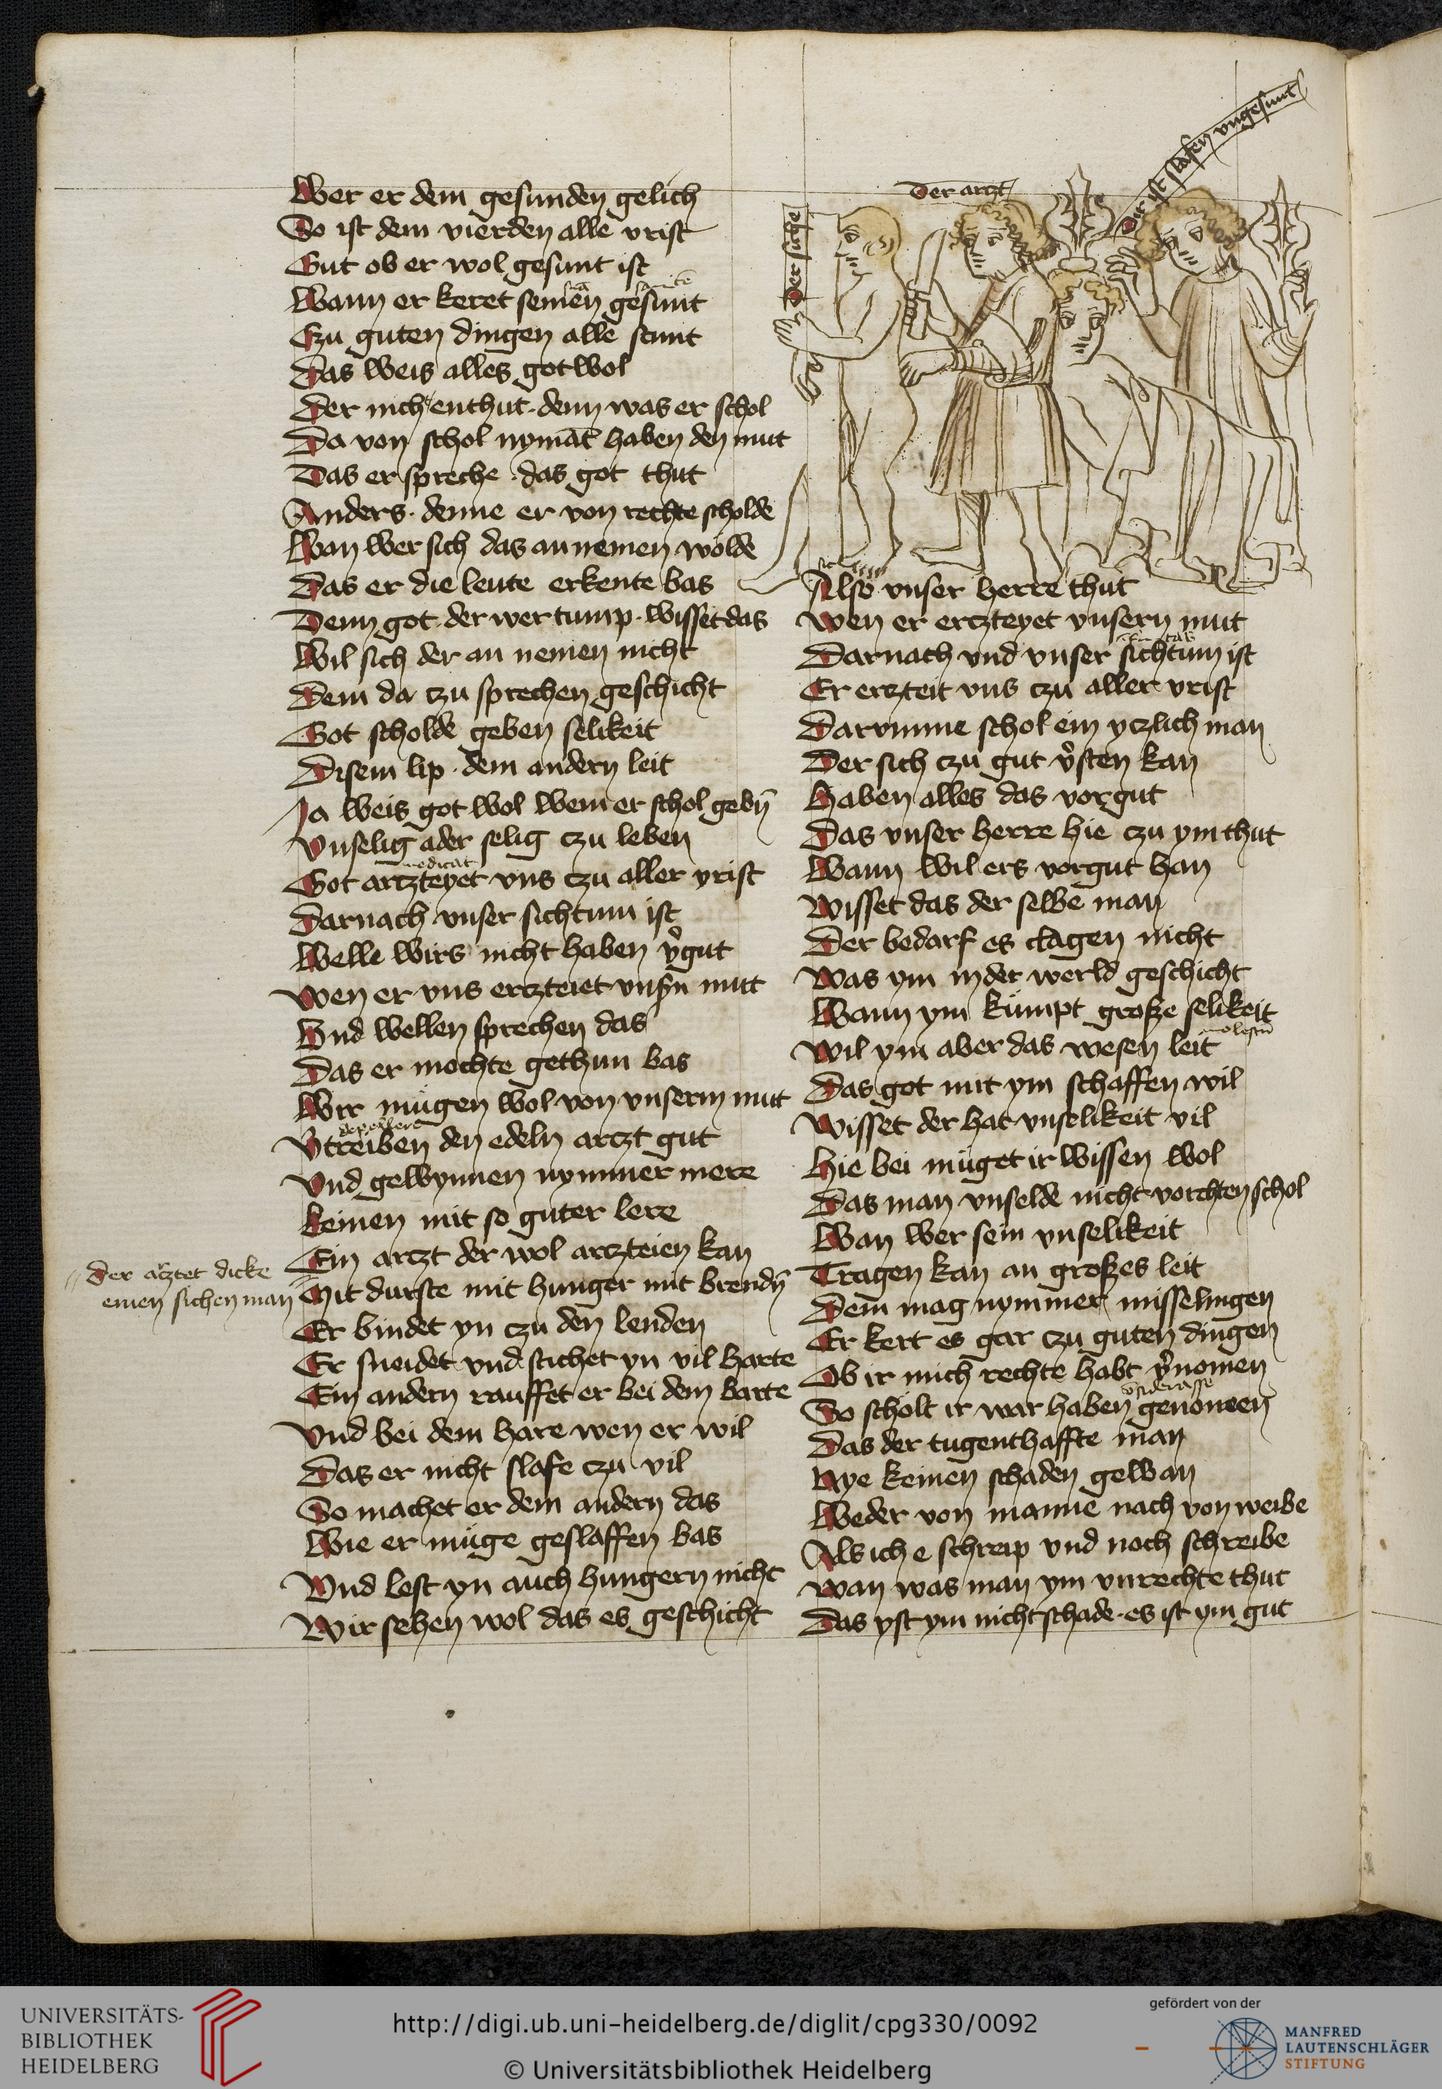 Wer er dem gesunden gelich
So ist dem vierden alle vrist
Gut ob er wol gesunt ist
Wann er keret seinen gesunt
Czu guten dingen alle stunt
Das weis alles got wol
Der nicht enthut · denn was er schol
Da von schol nymāt haben den mut
Das er spreche · das got thut
Anders · denne er von rechte scholde
Wan wer sich das an nemen wolde
Das er die leute erkente bas
Denn got · der wer tump · wisset das
Wil sich der an nemen nicht
Dem da czu sprechen geschicht
Got scholde geben selikeit
Disem lip · dem andern leit
Ja weis got wol wem er schol gebn̄
Vnselig ader selig czu leben
medicat
Got arczteyet vns czu aller vrist
Darnach vnser sichtum ist
Welle wirs nicht haben v̓gut
Wen er vns erczteiet vnsn̄ mut
Vnd wellen sprechen das
Das er mochte gethun bas
Wir mügen wol von vnserm mut
V̓treiben den edeln arczt gut
Vnd gewynnen nymmer mere
Keinen mit so guter lere
Ein arczt der wol arczteien kan
der arztet dicke
einen sichen man
Mit durste mit hunger mit brendn̄
Er bindet yn czu den lenden
Er sneidet vnd stichet yn vil harte
Ein andern rauffet er bei dem barte
Vnd bei dem hare wen er wil
Das er nicht slafe czu vil
So machet er dem andern das
Wie er müge geslaffen bas
Vnd lest yn auch hungern nicht
Wir sehen wol das es geschicht
Der siche
Der arczt
Der ist slafen vngesunt
Also vnser herre thut
Wen er erczteyet vnsern mut
Darnach vnd vnser sichtum ist
Er erczteit vns czu aller vrist
Darvmme schol ein yczlich man
Der sich czu gut v̓sten kan
Haben alles das vorgut
Das vnser herre hie czu ym thut
Wann wil ers vorgut han
Wisset das der selbe man
Der bedarf es clagen nicht
Was ym in der werld geschicht
Wann ym kümpt große selikeit
Wil ym aber das wesen leit
Das got mit ym schaffen wil
Wisset der hat vnselikeit vil
Hie bei müget ir wissen wol
Das man vnselde nicht vorchten schol
Wan wer sein vnselikeit
Tragen kan an großes leit
Dem mag nymmer misselingen
Er kert es gar czu guten dingen
Ob ir mich rechte habt v̓nomen
So scholt ir war haben genomen
Das der tugenthaffte man
Nye keinen schaden gewan
Weder von manne nach von weibe
Als ich e schreip vnd noch schreibe
Wan was man ym vnrechte thut
Das yst ym nicht schade · es ist ym gut
UNIVERSITÄTS-
BIBLIOTHEK
HEIDELBERG
http://digi.ub.uni-heidelberg.de/diglit/cpg330/0092
© Universitätsbibliothek Heidelberg
gefördert von der
MANFRED
LAUTENSCHLÄGER
STIFTUNG